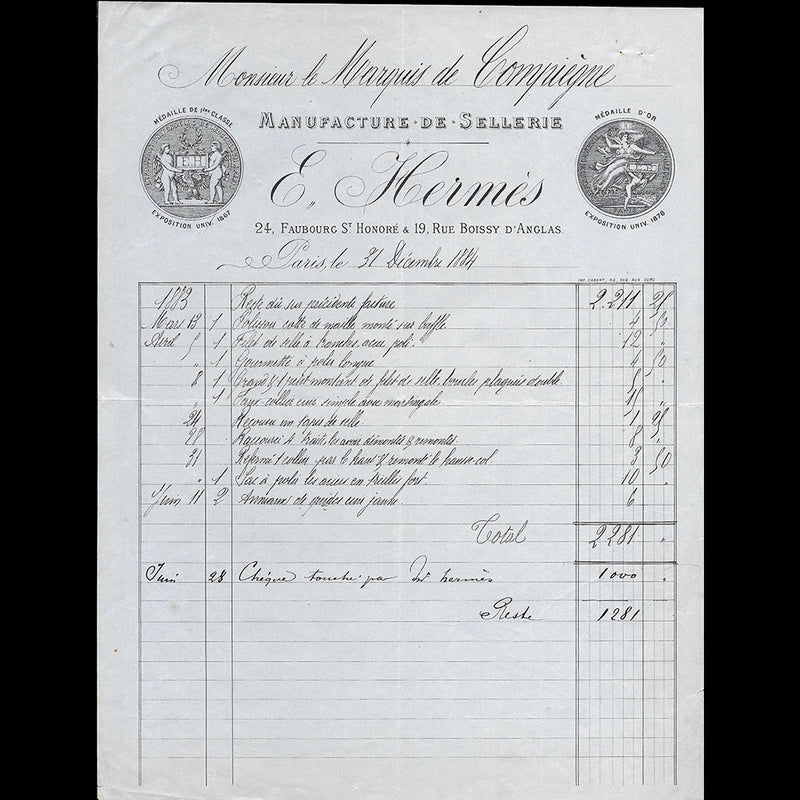 Monsieur le Marquis de Compiègne
MÉDAILLE DE 1ère CLASSE
E.H
EXPOSITION UNIV. 1867
MANUFACTURE·DE·SELLERIE
MÉDAILLE D'OR
EXPOSITION UNIV. 1878
E,, Hermès
24, FAUBOURG ST HONORÉ & 19, RUE BOISSY D'ANGLAS.
Paris, le 31 Décembre 1884
1883 Reste dû sur précédente facture 2.211 25
Mars 13 1 Polissoir cotte de maille monté sur buffle 4 50
Avril 5 1 Filet de selle à branches acier poli. 12 "
" 1 Gourmette à polir longue 4 50
8 1 Grand & 1 petit montant de filet de selle boucles plaqués double. 5 "
" 1 Faux collier cuir simple avec martingale. 15 "
24 Recousu un tapis de selle 1 25
28 Raccourci 4 traits, les avoir démontés & remontés. 8 "
31 Refermé 1 collier par le haut & remonté le hausse-col. 3 50
" 1 Sac à polir les aciers en treillis fort. 10 "
Juin 11 2 Anneaux de guides cuir jaune. 6
Total 2281 "
Juin 28 Chèque touché par Mr hermès 1000 "
Reste 1281